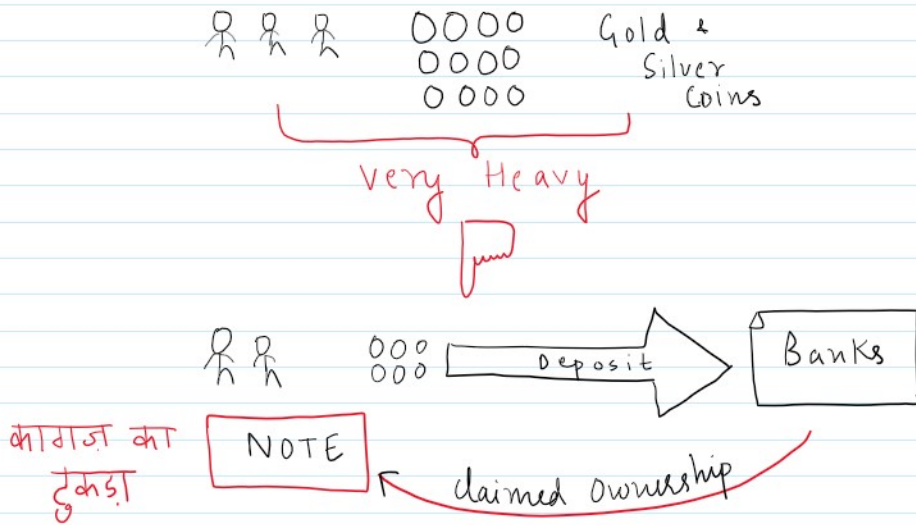 Gold &
Silver
Coins
Very Heavy
Deposit
Banks
कागज़ का
टुकड़ा
NOTE
claimed ownership